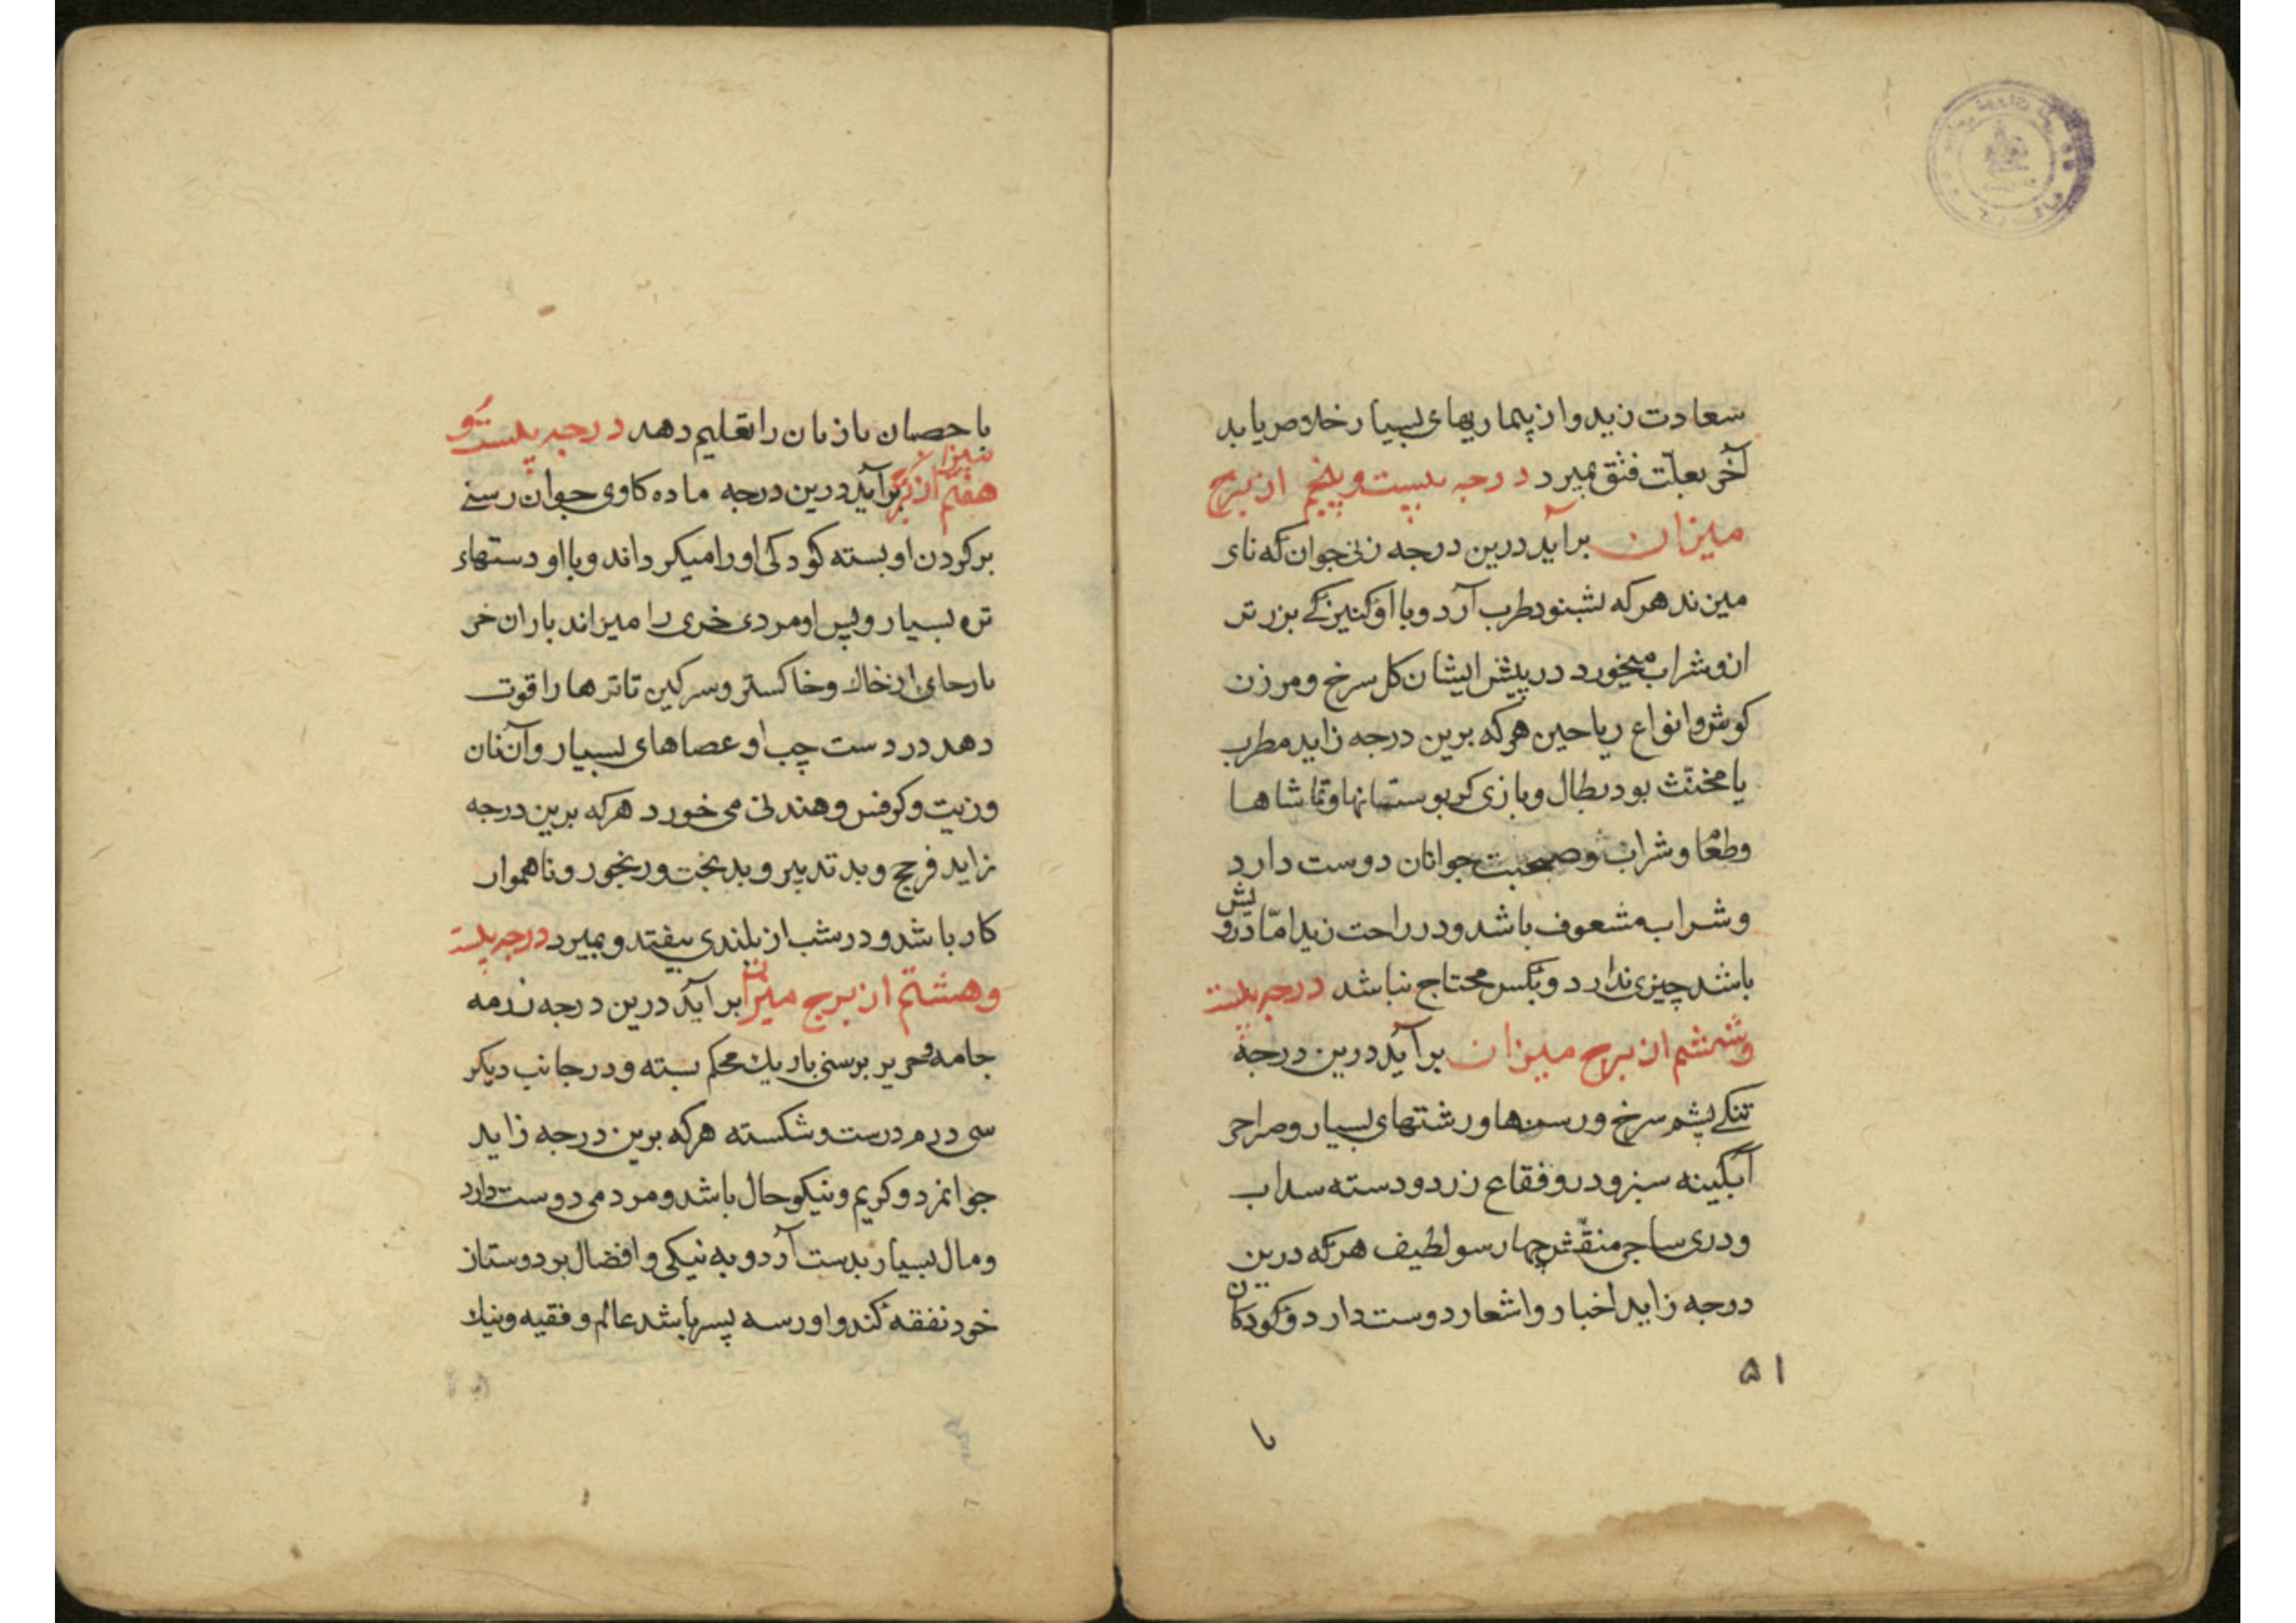 سعادت زید و از بیماریهای بسیار خلاص یابد
آخر بعلّت فتق بمیرد درجه بیست و پنجم از برج
میزان برآید درین درجه زنی جوان که نای
میزند هر که بشنود طرب آرد و با او کنیزکی بزرتر
ازو شراب میخورد در پیش ایشان کل سرخ و مرزن
کوش و انواع ریاحین هر که برین درجه زاید مطرب
یا مخنّث بود بطال و بازی کر بوستانها و تماشاها
وطعاما و شراب و صحبت جوانان دوست دارد
و شرابه مشعوف باشد و در راحت زید امّا درویش
باشد چیزی ندارد و بکس محتاج نباشد درجه بیست
و ششم از برج میزان برآید درین درجه
تنکی پشم سرخ و رسنها و رشتهای بسیار و صراحی
آبگینه سبز و درو فقاع زرد و دسته سداب
و دری ساجی منقّش چهار سو لطیف هر که درین
درجه زاید اخبار و اشعار دوست دارد و کودکان
۵۱
با
با حصبان بازبان را تعلیم دهد درجه بیست و
هفتم از برج میزان برآید درین درجه ماده کاوی جوان رسنی
بر کردن او بسته کودکی او را میکرداند و با او دستهاء
تره بسیار و پس او مردی خری را میراند باران خر
بارجای از خاك و خاکستر و سرکین تا ترها را قوت
دهد در دست چپ او عصاهای بسیار و آن نان
و زیت و کرفس و هندنی می خورد هر که برین درجه
زاید فرجج و بد تدبیر و بدبخت و رنجور و ناهموار
کار باشد و در شب از بلندی بیفتد و بمیرد درجه بیست
و هشتم از برج میزان برآید درین درجه رزمه
جامه و حریر برسنی باریك محکم بسته و در جانب دیکر
سی درم درست و شکسته هر که برین درجه زاید
جوانمرد و کریم و نیکو حال باشد و مردمی دوست دارد
و مال بسیار بدست آرد و به نیکی و افضال بر دوستان
خود نفقه کند و اورسه پسر باشد عالم و فقیه و نیك